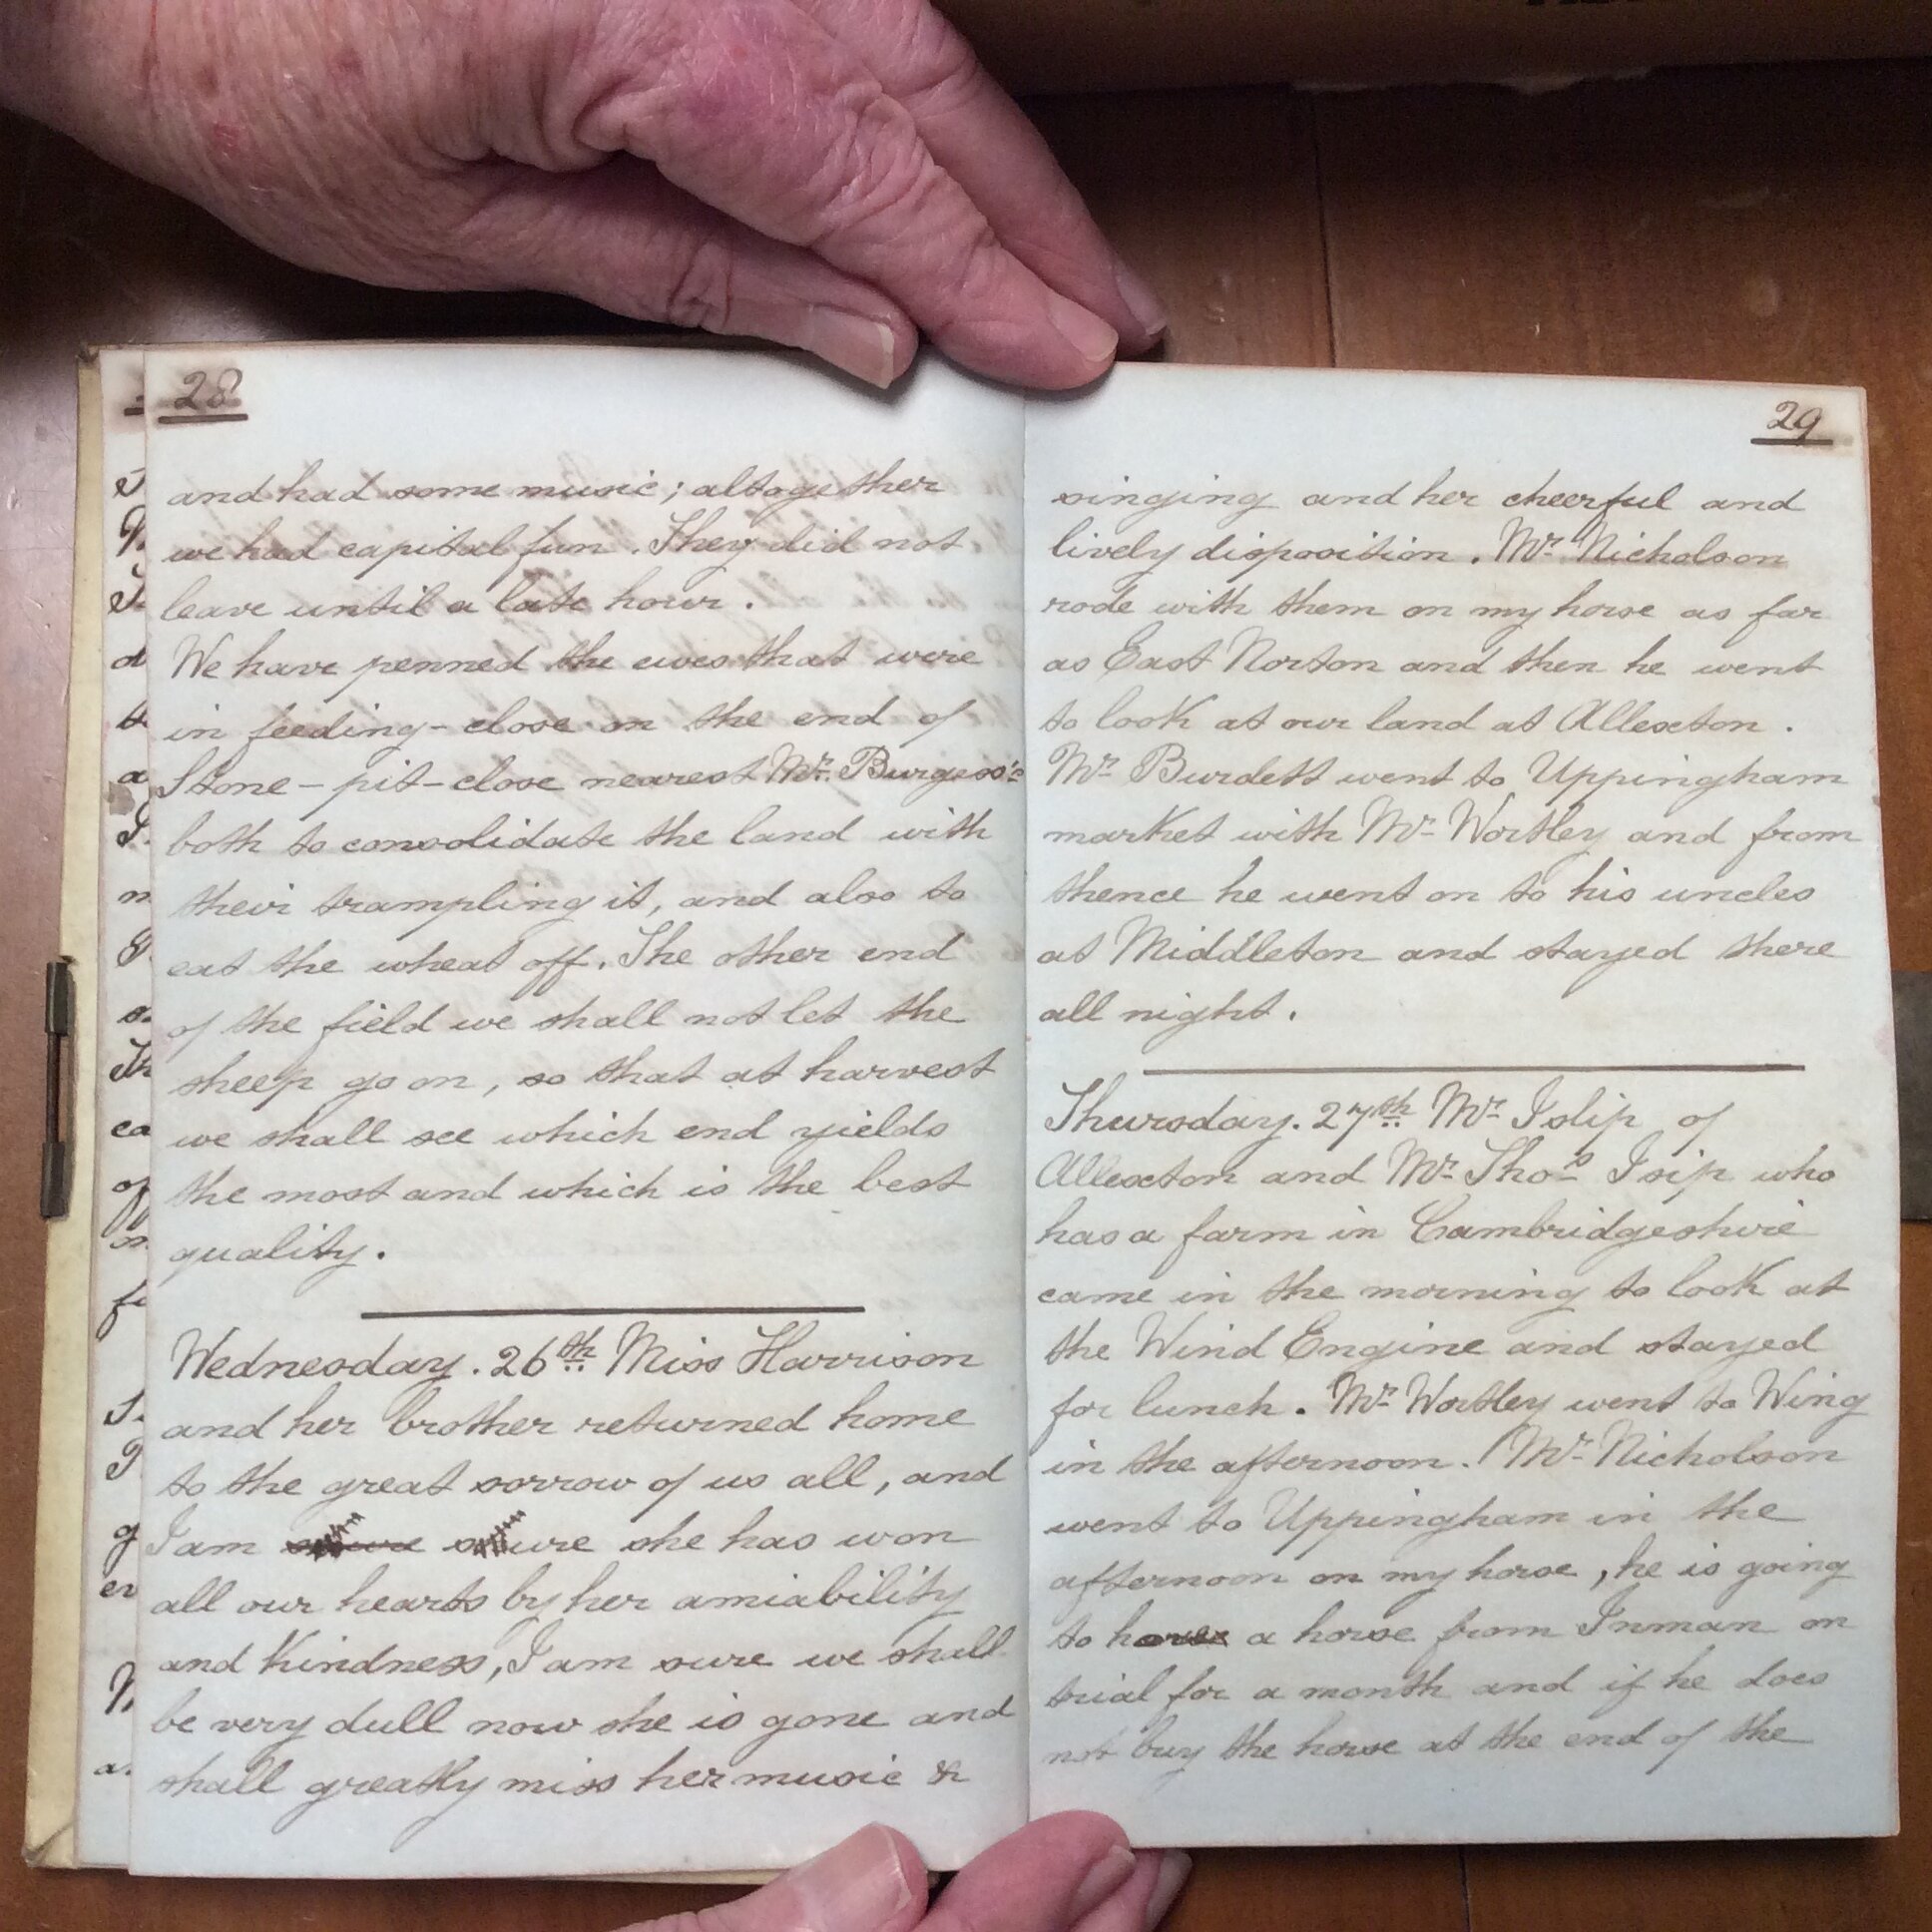 28
and had some music; altogether
we had capital fun. They did not
leave until a late hour.
We have penned the ewes that were
in feeding-close on the end of
Stone-pit-close nearest Mr. Burgess's
both to consolidate the land with
their trampling it, and also to
eat the wheat off. The other end
of the field we shall not let the
sheep go on, so that at harvest
we shall see which end yields
the most and which is the best
quality.
Wednesday. 26th Miss Harrison
and her brother returned home
to the great sorrow of us all, and
I am sure she has won
all our hearts by her amiability
and Kindness, I am sure we shall
be very dull now she is gone and
shall greatly miss her music &
29
singing and her cheerful and
lively disposition. Mr Nicholson
rode with them on my horse as far
as East Norton and then he went
to look at our land at Allexton.
Mr Burdett went to Uppingham
market with Mr Wortley and from
thence he went on to his uncles
at Middleton and stayed there
all night.
Thursday. 27th Mr Islip of
Allexton and Mr Thos Isip who
has a farm in Cambridgeshire
came in the morning to look at
the Wind Engine and stayed
for lunch. Mr Wortley went to Wing
in the afternoon. Mr Nicholson
went to Uppingham in the
afternoon on my horse, he is going
to a horse from Inman on
trial for a month and if he does
not buy the horse at the end of the